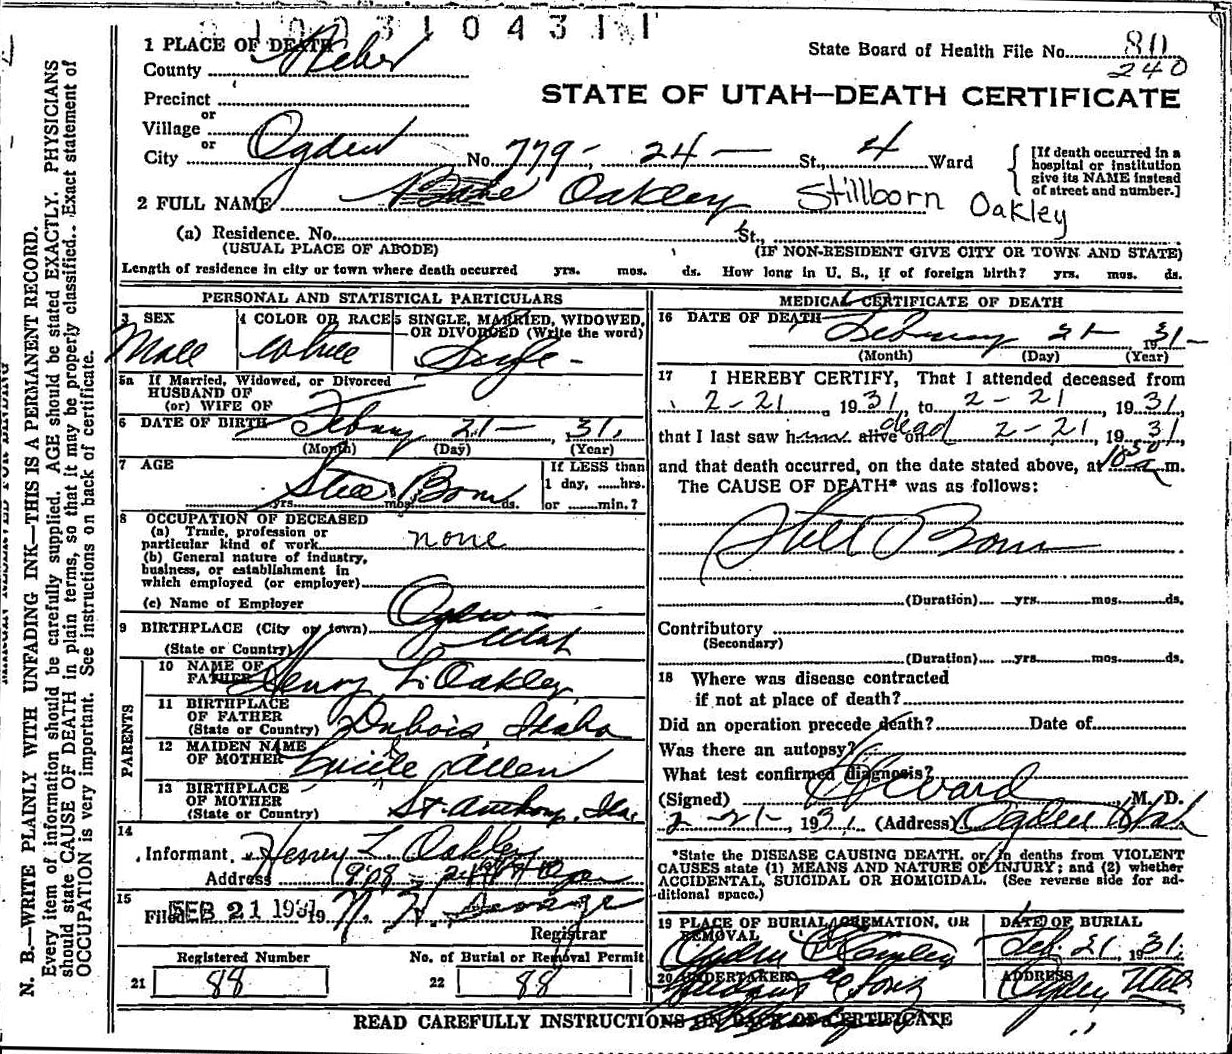 1 0 0 3 1 0 4 3 1 1
1 PLACE OF DEATH
State Board of Health File No. 80
240
County Weber
STATE OF UTAH—DEATH CERTIFICATE
Precinct
or
Village
or
City Ogden No. 779- 24 — St., 4 Ward
[If death occurred in a hospital or institution give its NAME instead of street and number.]
2 FULL NAME Oakley Stillborn Oakley
(a) Residence. No. St.,
(USUAL PLACE OF ABODE) (IF NON-RESIDENT GIVE CITY OR TOWN AND STATE)
Length of residence in city or town where death occurred yrs. mos. ds. How long in U. S., if of foreign birth? yrs. mos. ds.
PERSONAL AND STATISTICAL PARTICULARS
3 SEX 4 COLOR OR RACE 5 SINGLE, MARRIED, WIDOWED, OR DIVORCED (Write the word)
Male White Single -
5a If Married, Widowed, or Divorced
HUSBAND OF
(or) WIFE OF
6 DATE OF BIRTH Februay 21- , 31,
(Month) (Day) (Year)
7 AGE
If LESS than
1 day, ......hrs.
Still Born
yrs. mos. ds. or ......min.?
8 OCCUPATION OF DECEASED
(a) Trade, profession or
particular kind of work none
(b) General nature of industry,
business, or establishment in
which employed (or employer)
(c) Name of Employer
9 BIRTHPLACE (City or town) Ogden
(State or Country) Utah
PARENTS
10 NAME OF
FATHER Henry L. Oakley
11 BIRTHPLACE
OF FATHER
(State or Country) Dubois Idaho
12 MAIDEN NAME
OF MOTHER Lucile Allen
13 BIRTHPLACE
OF MOTHER
(State or Country) St. Anthony, Ida,
14
Informant Henry L. Oakley
Address
15
Filed FEB 21 1931 19
Registrar
Registered Number No. of Burial or Removal Permit
21 88 22 88
MEDICAL CERTIFICATE OF DEATH
16 DATE OF DEATH
February 21- 1931-
(Month) (Day) (Year)
17 I HEREBY CERTIFY, That I attended deceased from
2-21 , 1931, to 2-21 , 1931,
that I last saw h alive on dead 2-21, 1931,
and that death occurred, on the date stated above, at 1050 a m.
The CAUSE OF DEATH* was as follows:
Still Born
(Duration) yrs. mos. ds.
Contributory
(Secondary)
(Duration) yrs. mos. ds.
18 Where was disease contracted
if not at place of death?
Did an operation precede death? Date of
Was there an autopsy?
What test confirmed diagnosis?
(Signed) Ward , M. D.
2-21-, 1931, (Address) Ogden Utah
*State the DISEASE CAUSING DEATH, or in deaths from VIOLENT
CAUSES state (1) MEANS AND NATURE OF INJURY; and (2) whether
ACCIDENTAL, SUICIDAL OR HOMICIDAL. (See reverse side for ad-
ditional space.)
19 PLACE OF BURIAL, CREMATION, OR
REMOVAL
DATE OF BURIAL
Ogden Feb. 21, 1931.
20 UNDERTAKER ADDRESS
Ogden Utah
READ CAREFULLY INSTRUCTIONS ON BACK OF CERTIFICATE
N. B.—WRITE PLAINLY WITH UNFADING INK—THIS IS A PERMANENT RECORD.
Every item of information should be carefully supplied. AGE should be stated EXACTLY. PHYSICIANS
should state CAUSE OF DEATH in plain terms, so that it may be properly classified. Exact statement of
OCCUPATION is very important. See instructions on back of certificate.